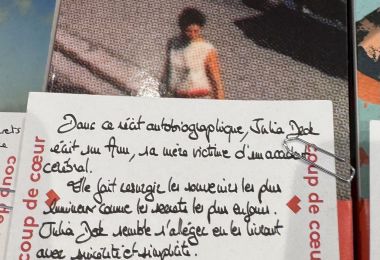 Dans ce récit autobiographique, Julia Deck
écrit sur Ann, sa mère victime d'un accident
cérébral.
Elle fait ressurgir les souvenirs les plus
lumineux comme les secrets les plus enfouis.
Julia Deck semble s'alléger en les livrant
avec sincérité et simplicité.
coup de cœur
coup de cœur